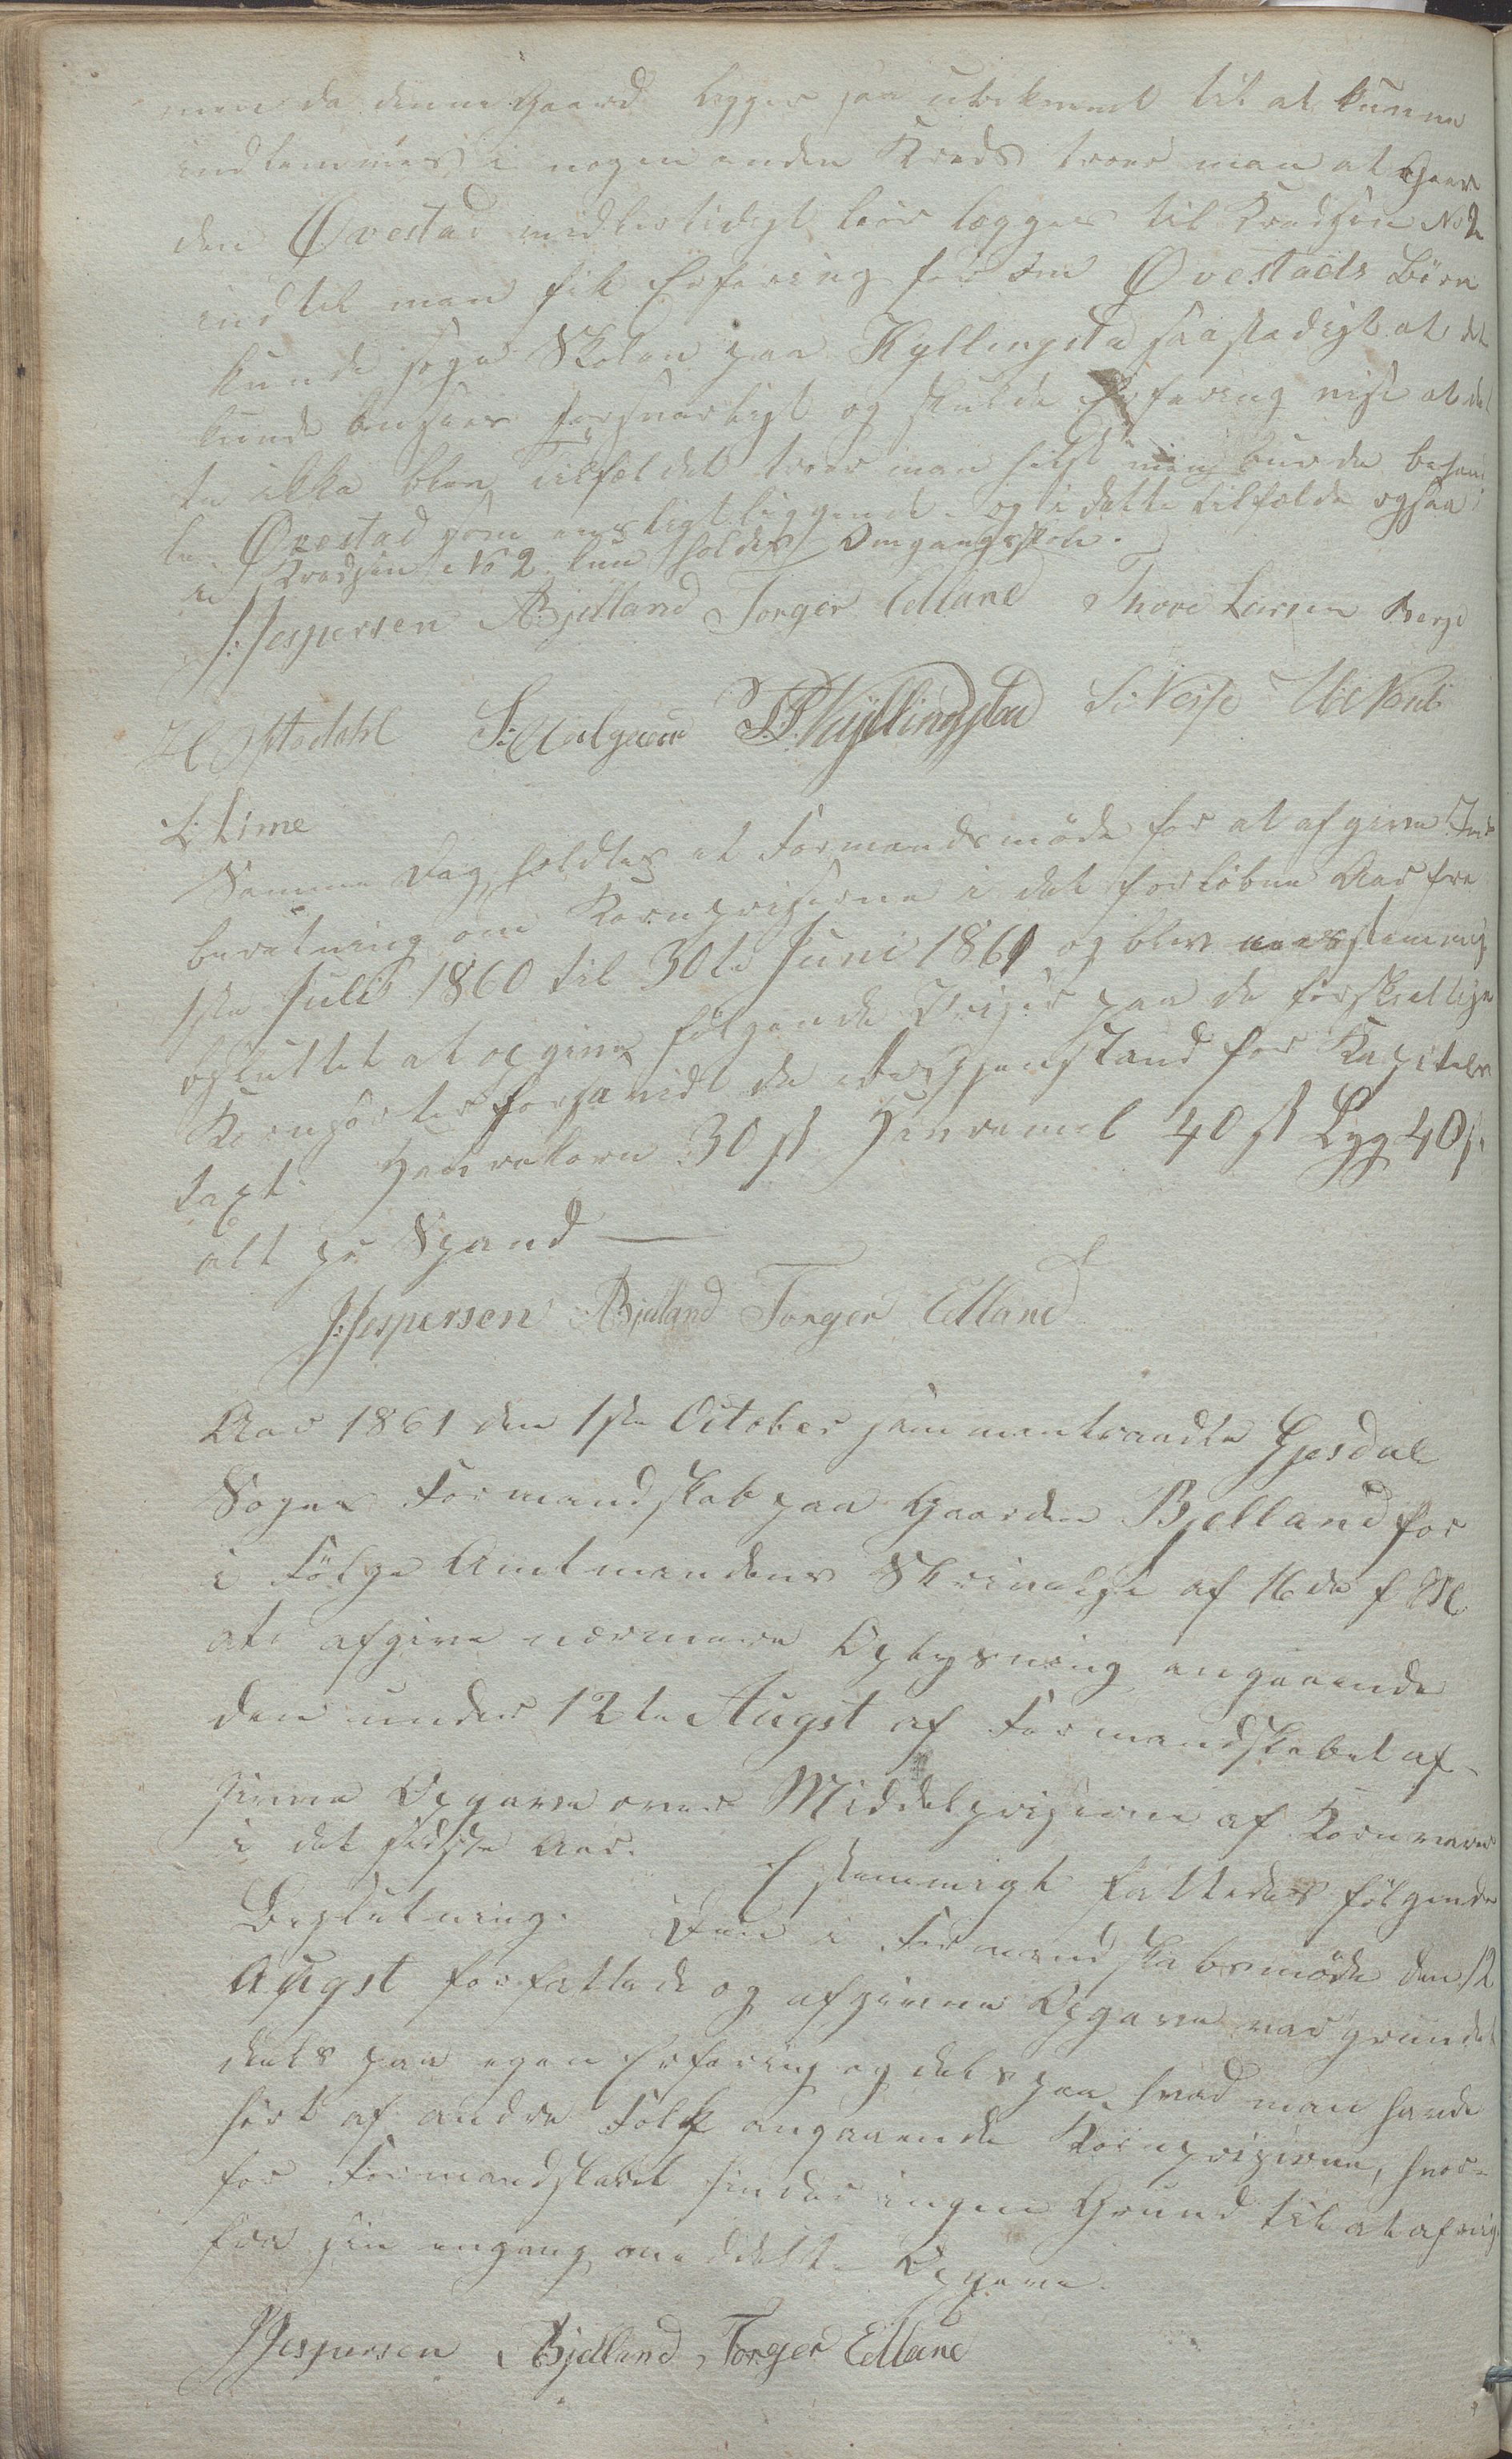 men da denne Gaard ligger saa ubekvemt til at kunne
indlemmes i nogen anden Kreds troer man at Gaar
den Øvestad midlertidigt bør lægges til Kredsen No 2
indtil man fik Erfaring for om Øvestads Børn
kunde søge Skolen paa Kyllingsta saa stadigt at det
kunde ansees forsvarligt og skulde Erfaring vise at det
te ikke blev Tilfældet troer man helst man burde behand
le Øvestad som enstligt liggende og i dette Tilfælde ogsaa
i Kredsen No 2 kun holdes Omgangsskole.
J: Jespersen A Bjelland Torger Edland Thore Larsen Berge
H Ofstedahl S: T.P. Kyllingstad S: Veise
L: Lime
Samme Dag holdtes et Formandsmøde for at afgive Ind
beretning om Kornpriserne i det forløbne Aar fra
1ste Juli 1860 til 30te Juni 1861 og blev eenstemmig
besluttet at opgive følgende Priser paa de forskiellige
Kornsorter forsaavidt de ere Gjenstand for Kapitels
taxt. Havrekorn 30 ß Havremel 40 ß Byg 40 ß
alt pr Spand —
J: Jespersen A Bjelland Torger Edland
Aar 1861 den 1ste October sammentraadte Gjesdal
Sogns Formandskab paa Gaarden Bjelland for
i Følge Amtmandens Skrivelse af 16de f M
at afgive nærmere Oplysning angaaende
den under 12te Augst af Formandskabet af-
givne Opgave over Middelpriserne af Kornvarer
i det sidste Aar. Eenstemmigt fattedes følgende
Beslutning. Den i Formandskabsmøde den 12
Augst forfattede og afgivne Opgave var grundet
deels paa egen Erfaring og deels paa hvad man havde
hørt af andre Folk angaaende Kornpriserne, hvor-
for Formandskabet finder ingen Grund til at afvige
fra sin engang meddelte Opgave.
J Jespersen A Bjelland, Torger Edland